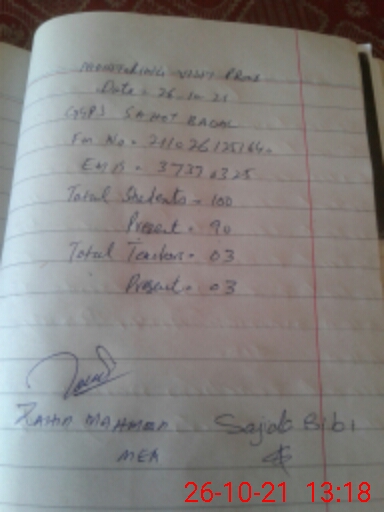 MONITORING VISIT PROF
Date = 26-10-21
GGPS SAHOT BADAL
Em No =
EMIS = 37371325
Total Students = 100
Present = 90
Total Teachers = 03
Present = 03
Zahid MAHMOOD Sajida Bibi
MEA
26-10-21 13:18